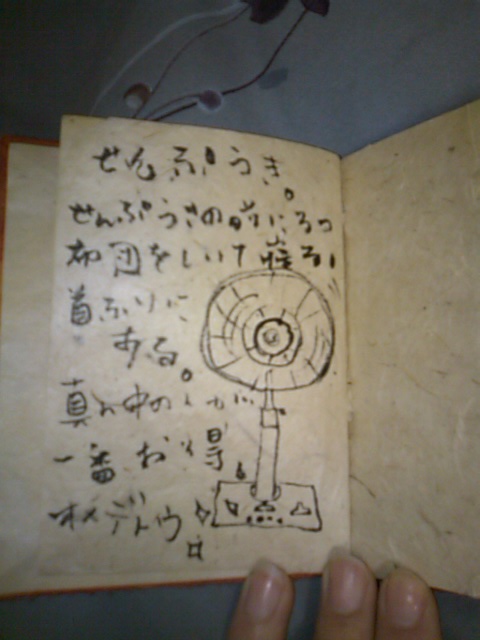 せんぷうき。
せんぷうきの前に3つ
布団をしいて寝る、
首ふりに
ある。
真ん中の人が
一番お得
オメデトウ